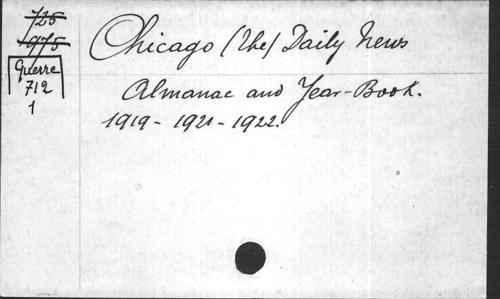 725
975
Guerre
712
1
Chicago (The) Daily News
Almanac and Year-Book.
1919 - 1921 - 1922.